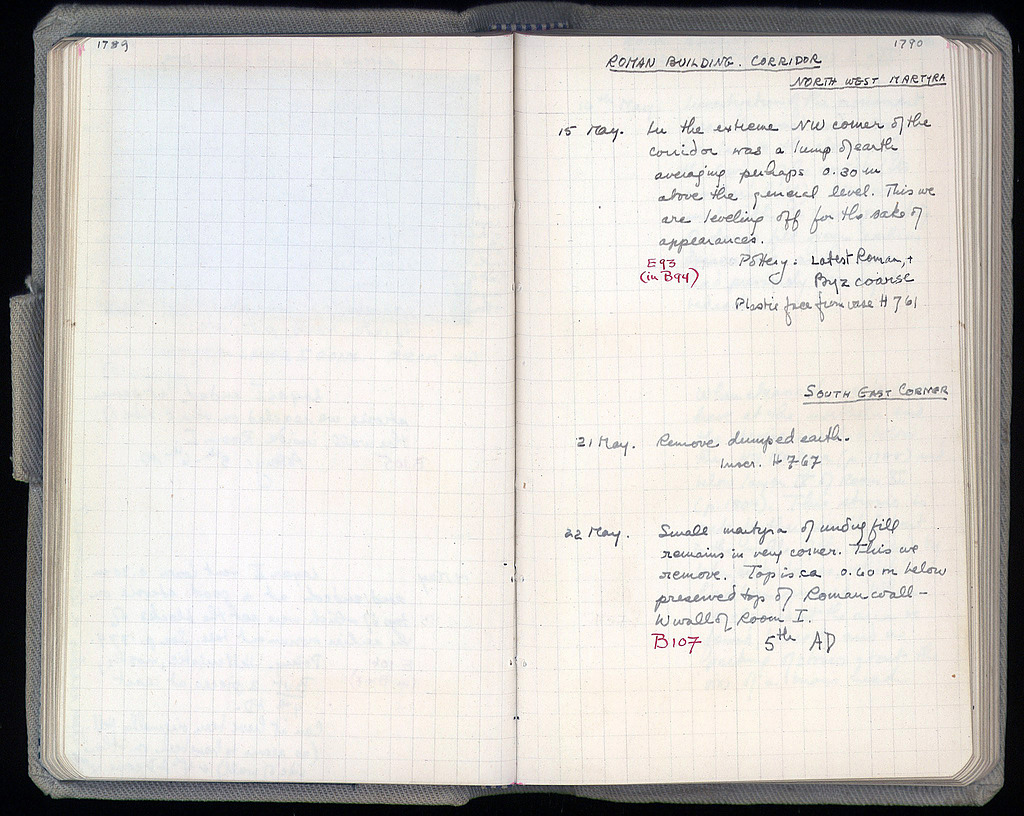 1789
1790
ROMAN BUILDING. CORRIDOR
NORTH WEST MARTYRA
15 May. In the extreme NW corner of the
corridor was a lump of earth
averaging perhaps 0.30 m
above the general level. This we
are leveling off for the sake of
appearances.
E93 Pottery: Latest Roman, +
(in B94) Byz coarse
Plastic face from vase H 761
SOUTH EAST CORNER
21 May. Remove dumped earth.
Inscr. H 767
22 May. Small martyra of undug fill
remains in very corner. This we
remove. Top is ca 0.60 m below
preserved top of Roman wall –
W wall of Room I.
B107 5th AD